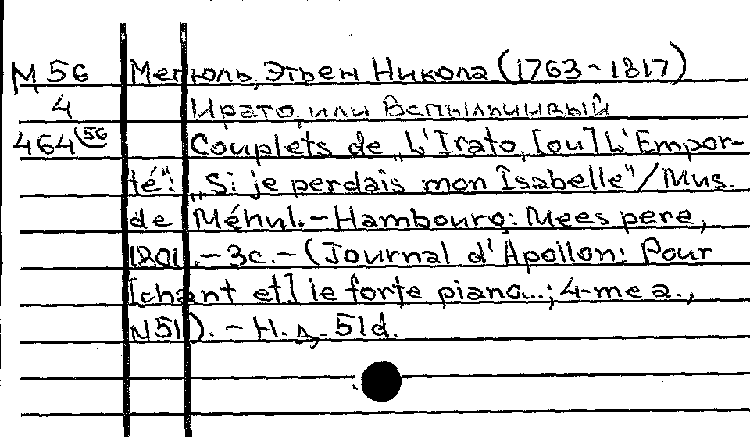 М 56 Мегюль, Этьен Никола (1763-1817)
4 Ирато, или Вспыльчивый
464(56 Couplets de „L'Irato, [ou] L'Empor-
té": „Si je perdais mon Isabelle"/Mus.
de Méhul.-Hambourg: Mees pere,
1801.-3c.-(Journal d'Apollon: Pour
[chant et] le forte piano...; 4-me a.,
N51). - Н.д. 51d.